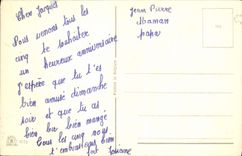 Cher Jacques
Nous venons tous les
cinq te souhaiter
un heureux anniversaire
J'espère que tu t'es
bien amusé dimanche
soir et que tu as
bien bu bien mangé
Tous les cinq nous
t'embrassons bien
fort
Jean Pierre
Maman
papa